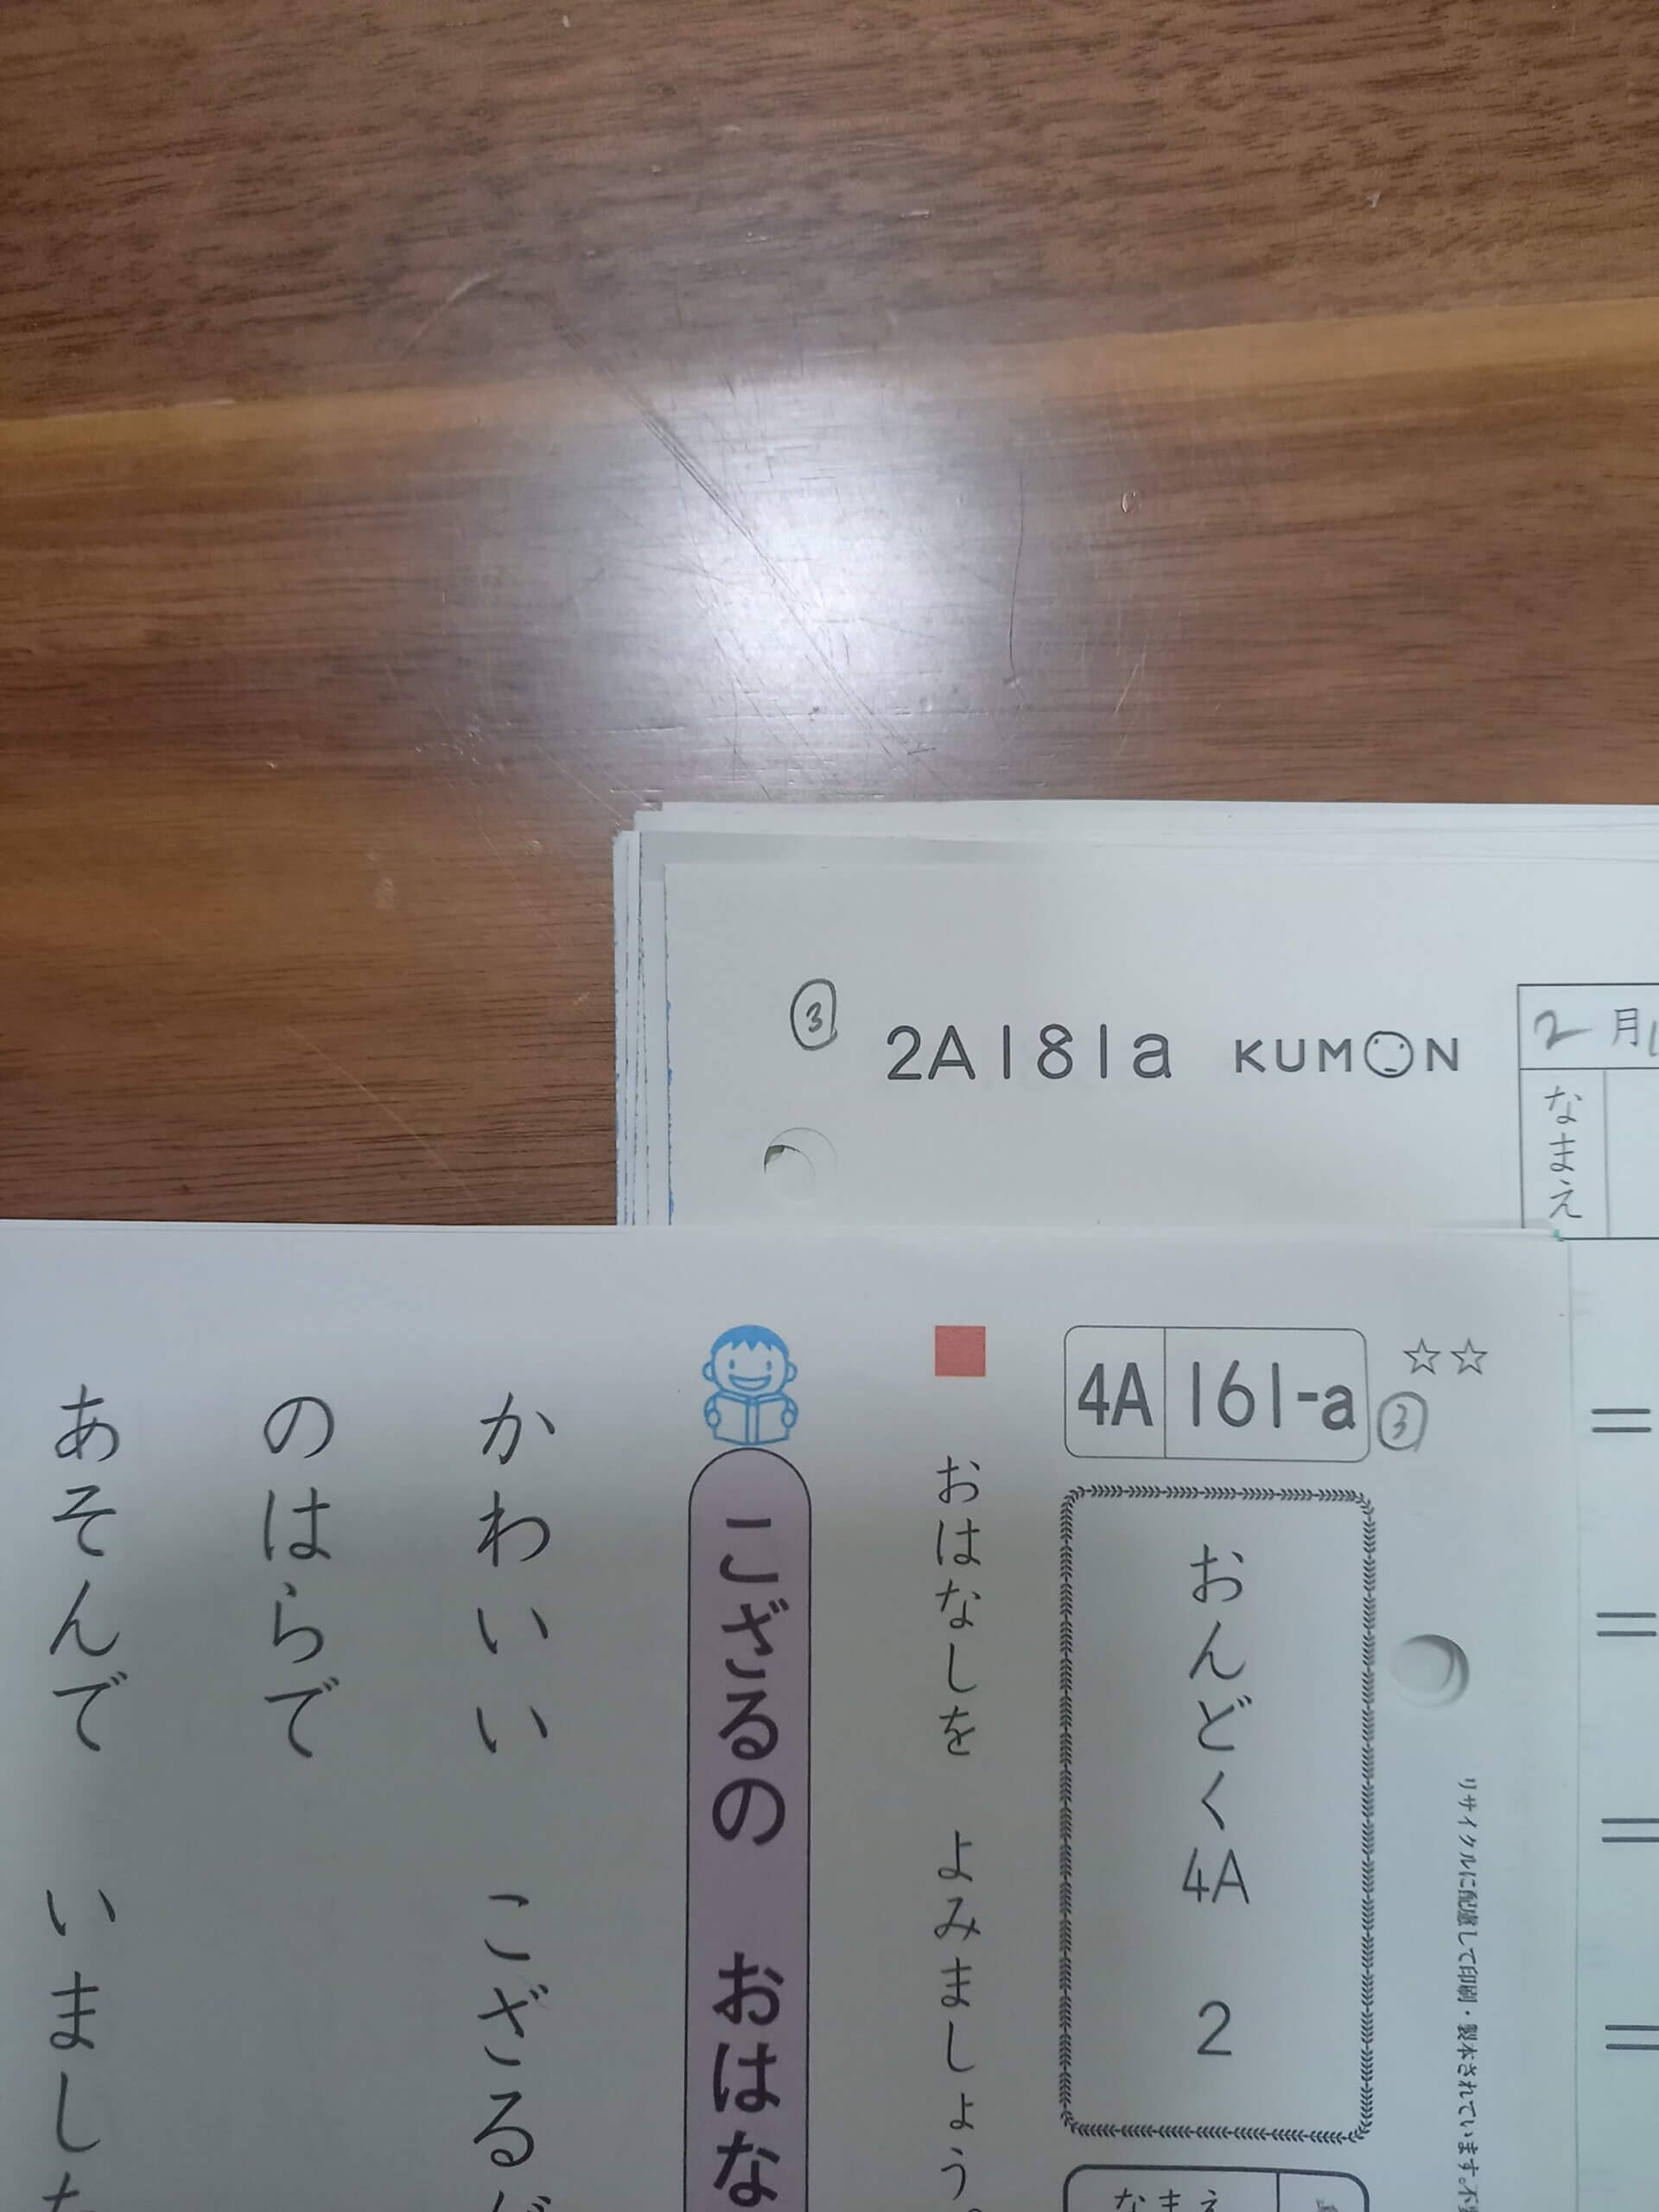 ③ 2A181a KUMON
2月
なまえ
☆☆
4A 161-a ③
リサイクルに配慮して印刷・製本されています。不
おんどく4A 2
なまえ
おはなしを よみましょう。
こざるの おはな
かわいい こざるが
のはらで
あそんで いました